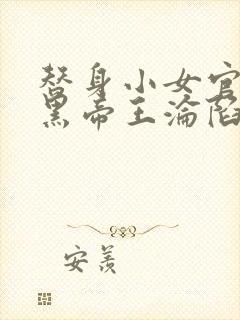 替身小女官
黑帝王淪陷
安羨